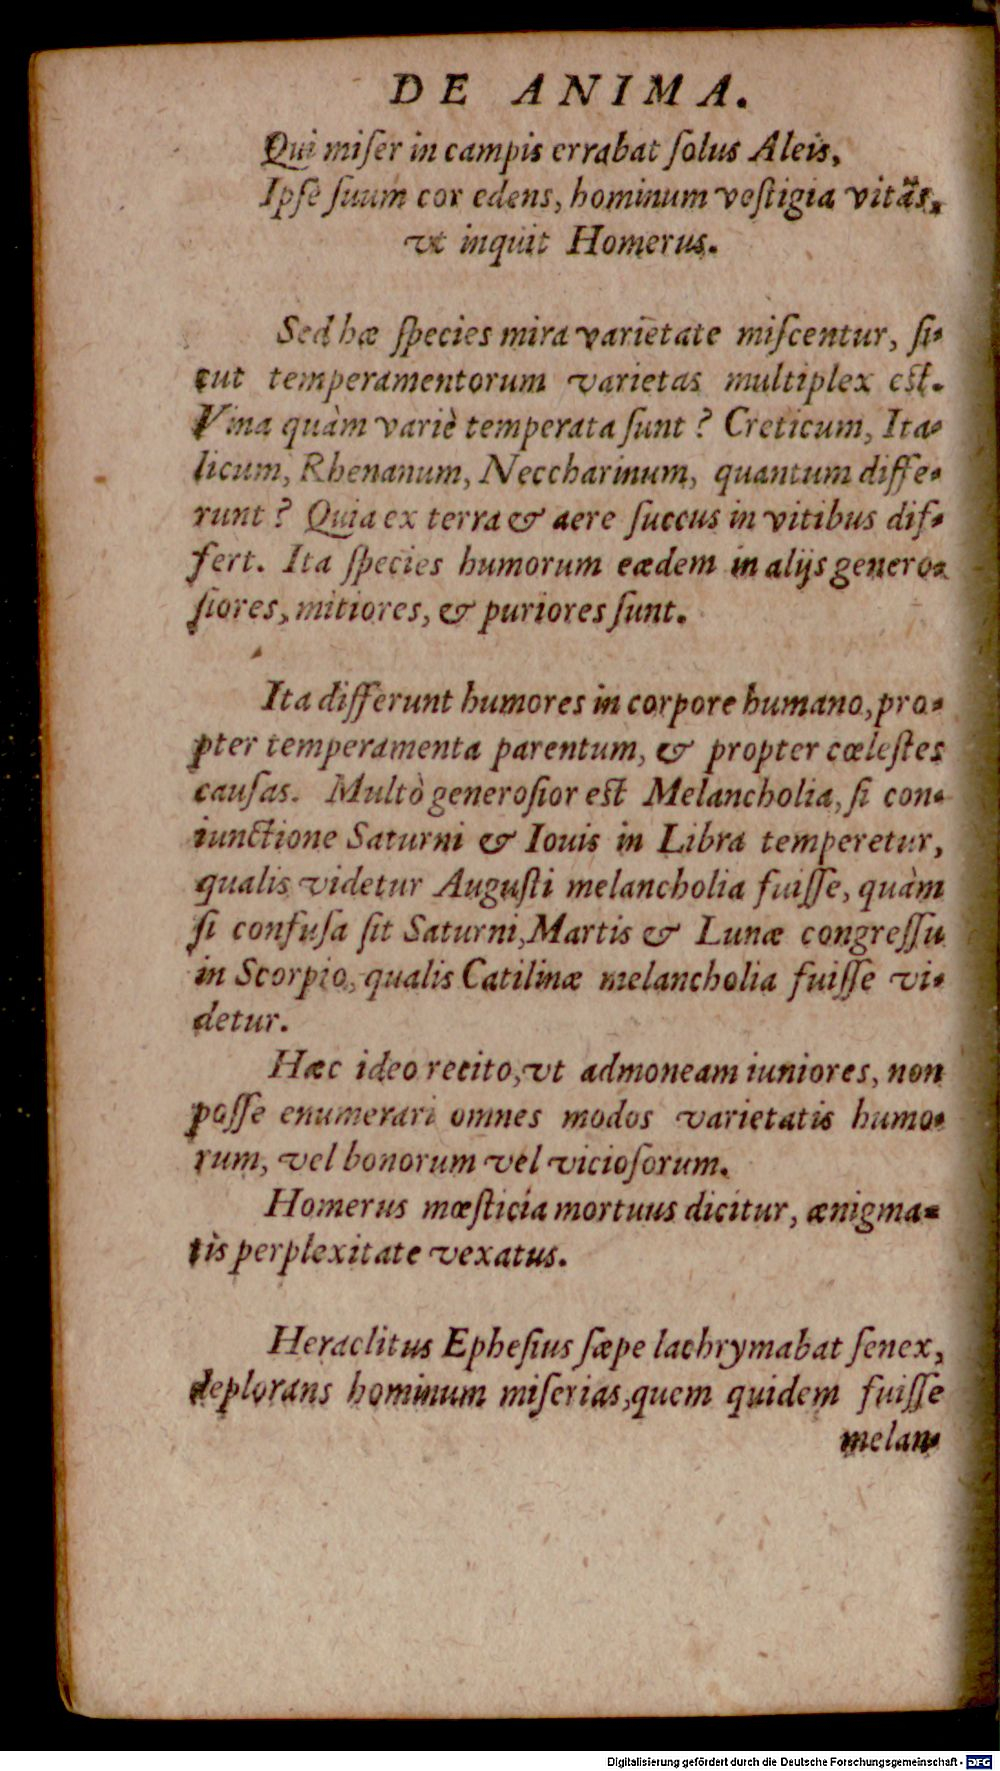 DE ANIMA.
Qui miſer in campis errabat ſolus Aleis,
Ipſe ſuum cor edens, hominum veſtigia vitãs,
vt inquit Homerus.
Sed hæ ſpecies mira varietate miſcentur, ſi-
cut temperamentorum varietas multiplex eſt.
Vina quàm variè temperata ſunt? Creticum, Ita-
licum, Rhenanum, Neccharinum, quantum diffe-
runt? Quia ex terra & aere ſuccus in vitibus dif-
fert. Ita ſpecies humorum eædem in alijs genero-
ſiores, mitiores, & puriores ſunt.
Ita differunt humores in corpore humano, pro-
pter temperamenta parentum, & propter cœleſtes
cauſas. Multò generoſior eſt Melancholia, ſi con-
iunctione Saturni & Iouis in Libra temperetur,
qualis videtur Auguſti melancholia fuiſſe, quàm
ſi confuſa ſit Saturni, Martis & Lunæ congreſſu
in Scorpio, qualis Catilinæ melancholia fuiſſe vi-
detur.
Hæc ideo recito, vt admoneam iuniores, non
poſſe enumerari omnes modos varietatis humo-
rum, vel bonorum vel vicioſorum.
Homerus mœſticia mortuus dicitur, ænigma-
tis perplexitate vexatus.
Heraclitus Epheſius ſæpe lachrymabat ſenex,
deplorans hominum miſerias, quem quidem fuiſſe
melan-
Digitalisierung gefördert durch die Deutsche Forschungsgemeinschaft - DFG